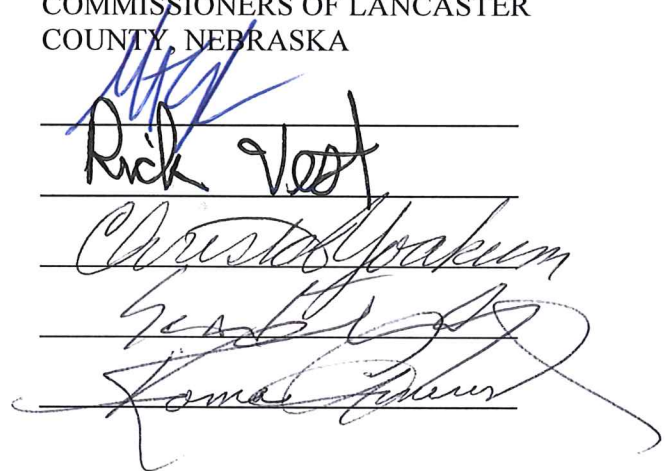 COMMISSIONERS OF LANCASTER
COUNTY, NEBRASKA
Rick Vest
Christa Yoakum
Roma Amundson